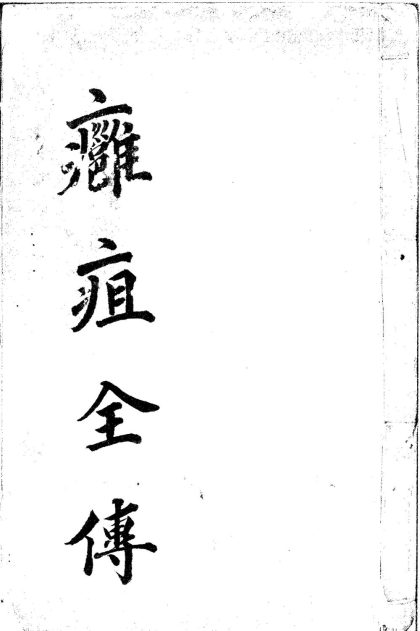 癰疽全傳